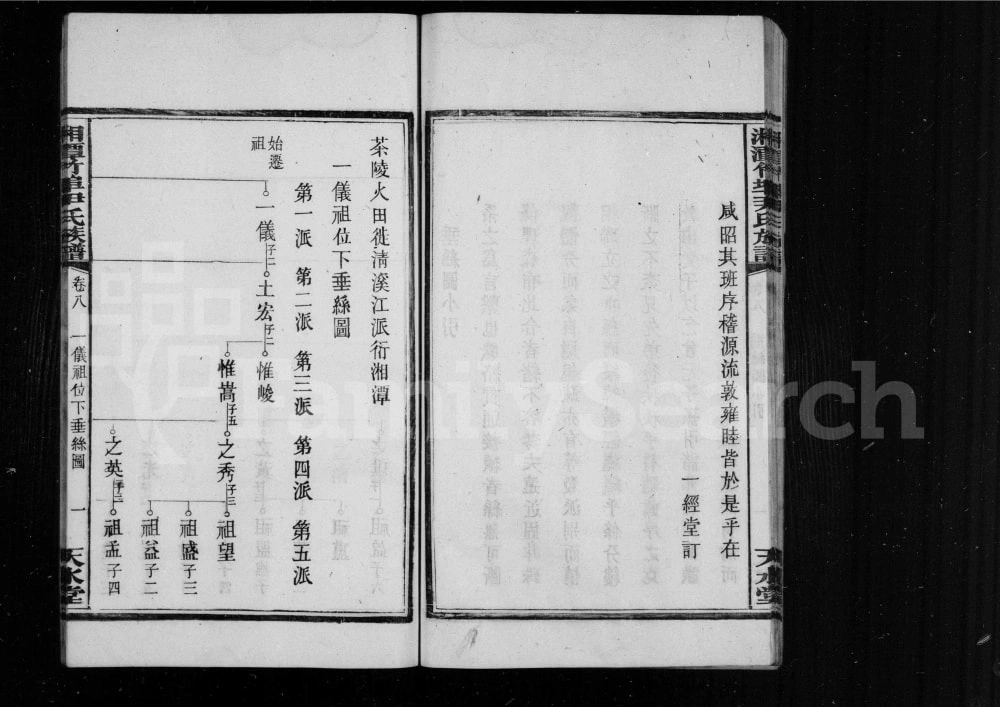 咸昭其班序稽源流敦雍睦皆於是乎在
一經堂訂
天水堂
茶陵火田徙清溪江派衍湘潭
一儀祖位下垂絲圖
第一派 第二派 第三派 第四派 第五派
始遷祖
一儀子二
士宏子二
惟峻
惟嵩子五
之秀子三
祖望
祖盛子三
祖益子二
之英子三
祖孟子四
湘潭竹埠尹氏族譜
卷八
一儀祖位下垂絲圖
一
天水堂
FamilySearch